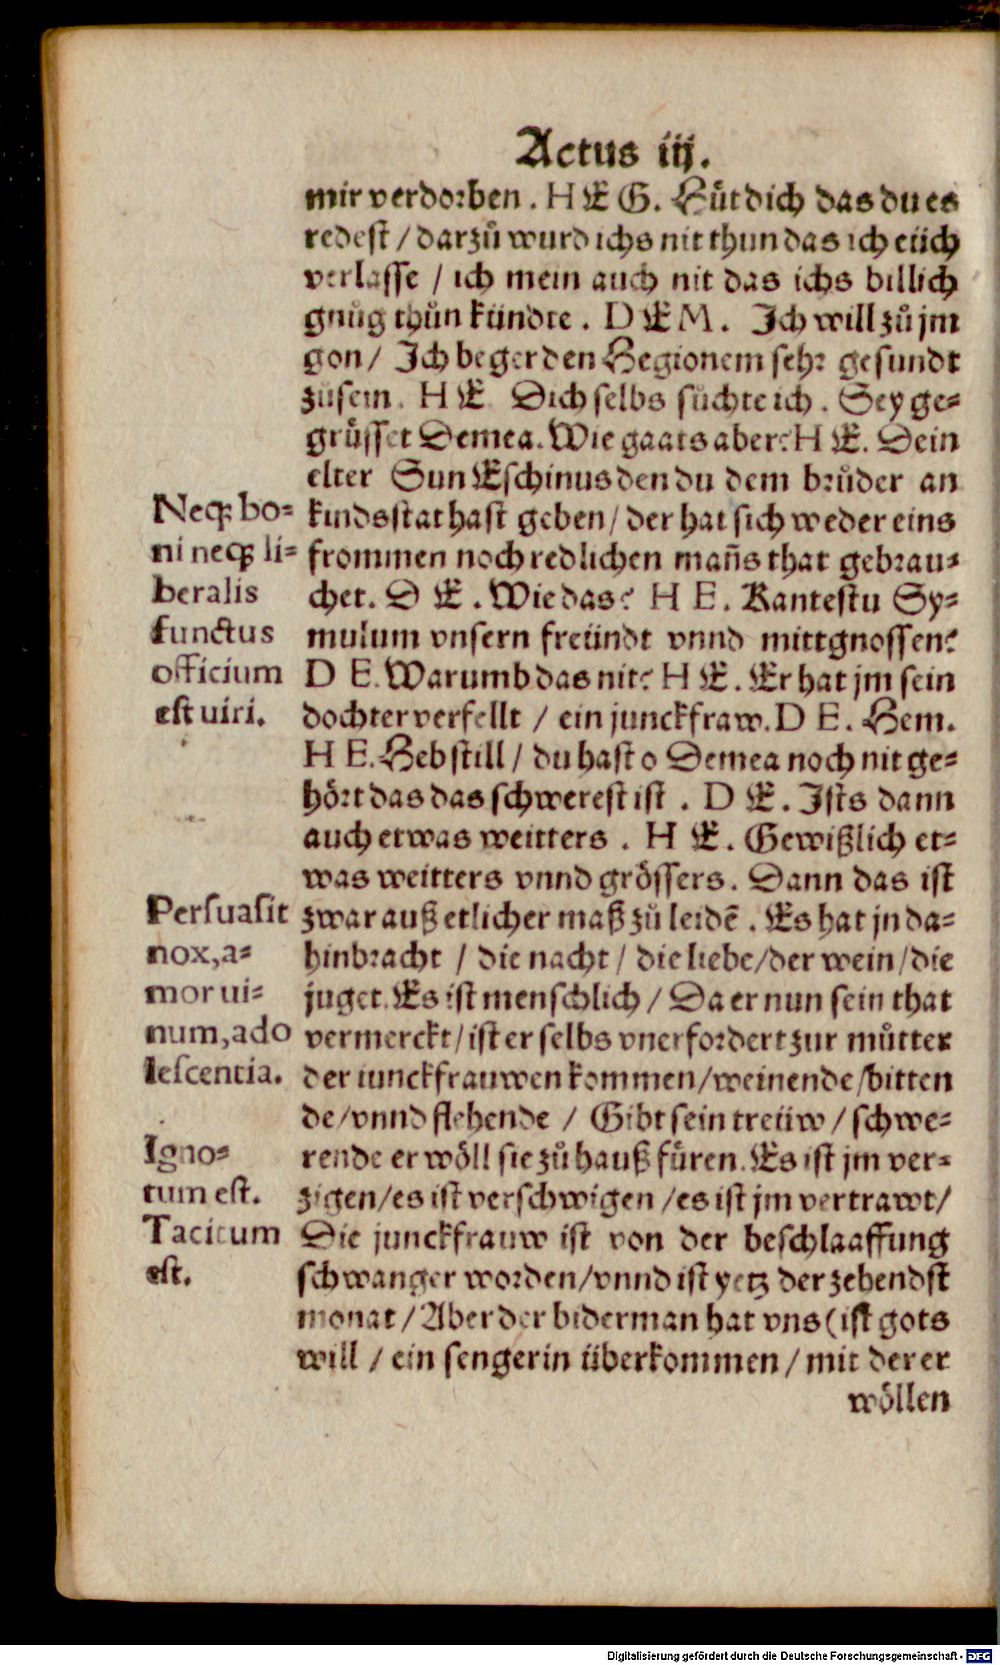 Actus iij.
mir verdorben. HEG. Hůt dich das du es
redest / darzů wurd ichs nit thun das ich eüch
verlasse / ich mein auch nit das ichs billich
gnůg thůn kündte. DEM. Ich will zů jm
gon / Ich beger den Hegionem sehr gesundt
zůsein. HE. Dich selbs sůchte ich. Sey ge-
grůsset Demea. Wie gaats aber? HE. Dein
elter Sun Eschinus den du dem brůder an
kindsstat hast geben / der hat sich weder eins
frommen noch redlichen mañs that gebrau-
chet. DE. Wie das? HE. Kantestu Sy-
mulum vnsern freündt vnnd mittgnossen?
DE. Warumb das nit? HE. Er hat jm sein
dochter verfellt / ein junckfraw. DE. Hem.
HE. Heb still / du hast o Demea noch nit ge-
hört das das schwerest ist. DE. Ists dann
auch etwas weitters. HE. Gewißlich et-
was weitters vnnd grössers. Dann das ist
zwar auß etlicher maß zů leidē. Es hat jn da-
hinbracht / die nacht / die liebe / der wein / die
juget. Es ist menschlich / Da er nun sein that
vermerckt / ist er selbs vnerfordert zur můtter
der iunckfrauwen kommen / weinende / bitten
de / vnnd flehende / Gibt sein treüw / schwe-
rende er wöll sie zů hauß füren. Es ist jm ver-
zigen / es ist verschwigen / es ist jm vertrawt /
Die junckfrauw ist von der beschlaaffung
schwanger worden / vnnd ist yetz der zehendst
monat / Aber der biderman hat vns (ist gots
will / ein sengerin überkommen / mit der er
wöllen
Neqꝫ bo-
ni neqꝫ li-
beralis
functus
officium
est uiri.
Persuasit
nox, a-
mor ui-
num, ado
lescentia.
Igno-
tum est.
Tacitum
est.
Digitalisierung gefördert durch die Deutsche Forschungsgemeinschaft - DFG